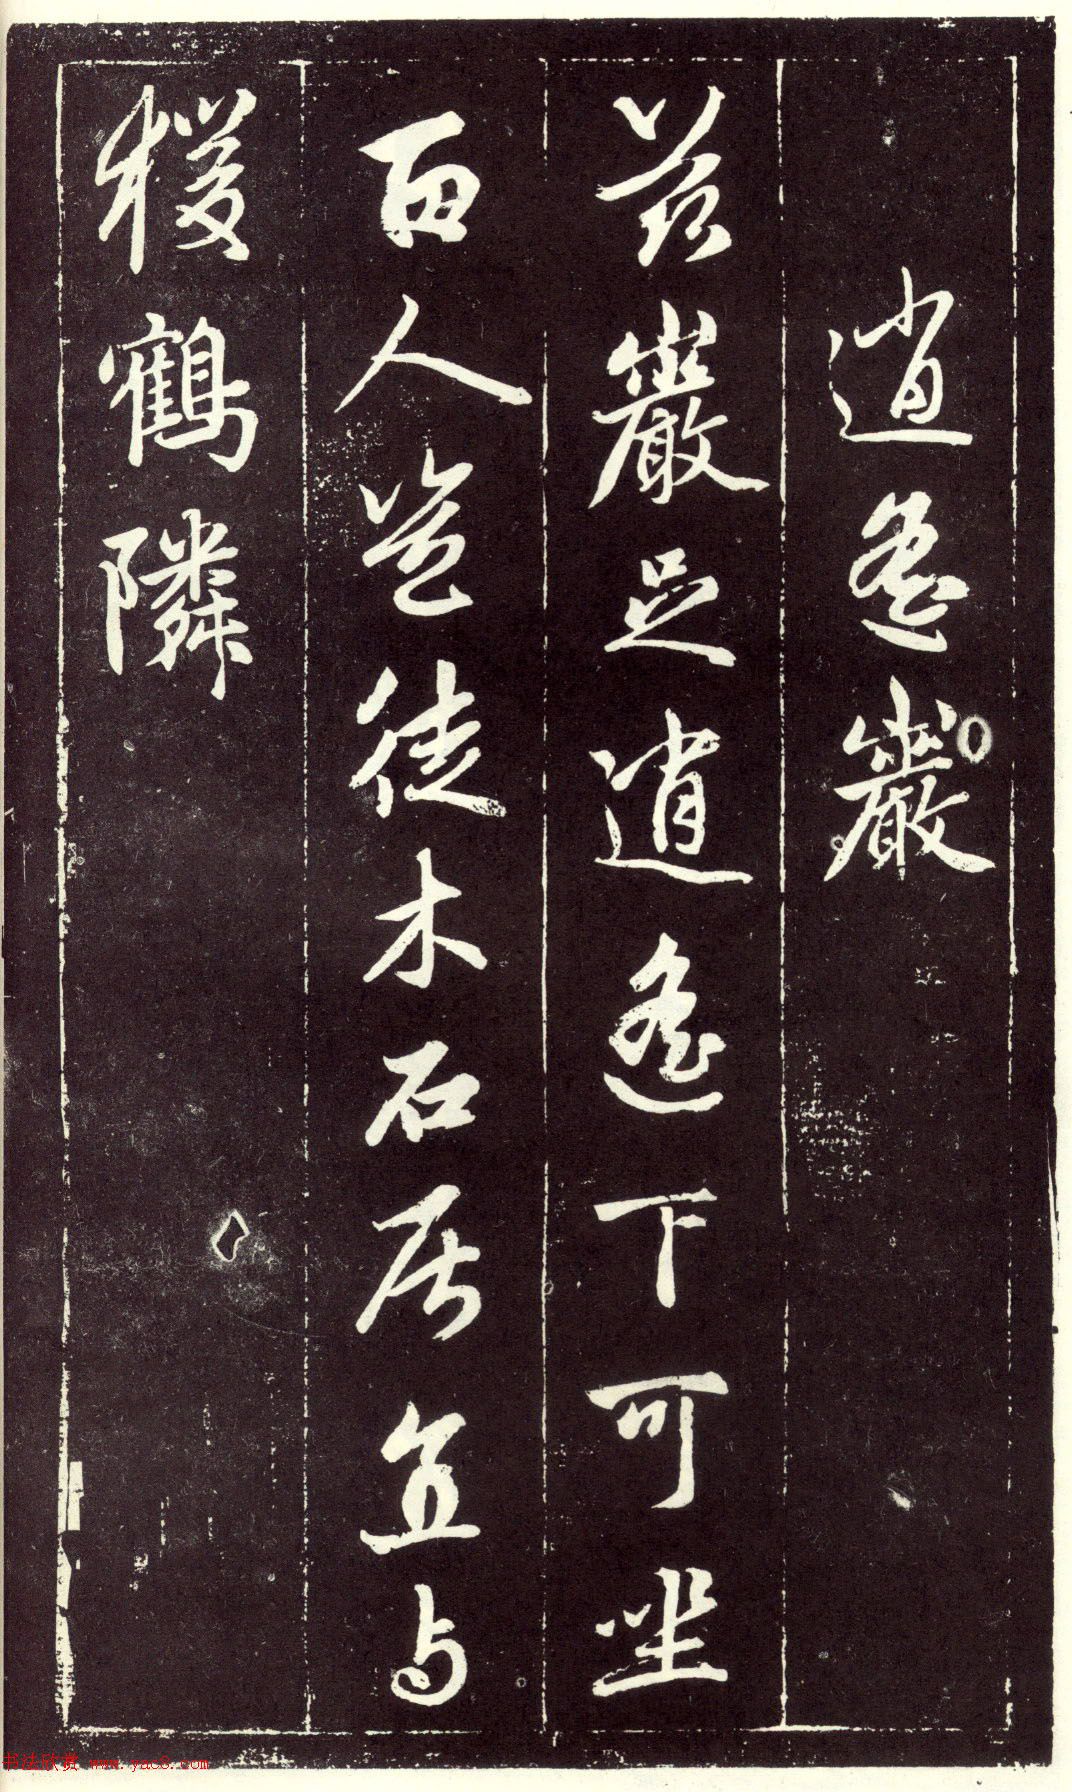 逍遙巖
茲巖足逍遙下可坐
百人豈徒木石居宜與
猨鶴隣
书法欣赏 www.yac8.com